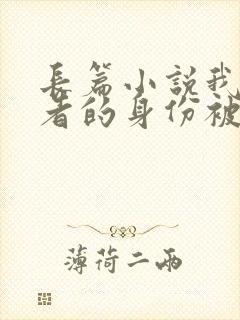 長篇小說我
者的身份被
薄荷二兩